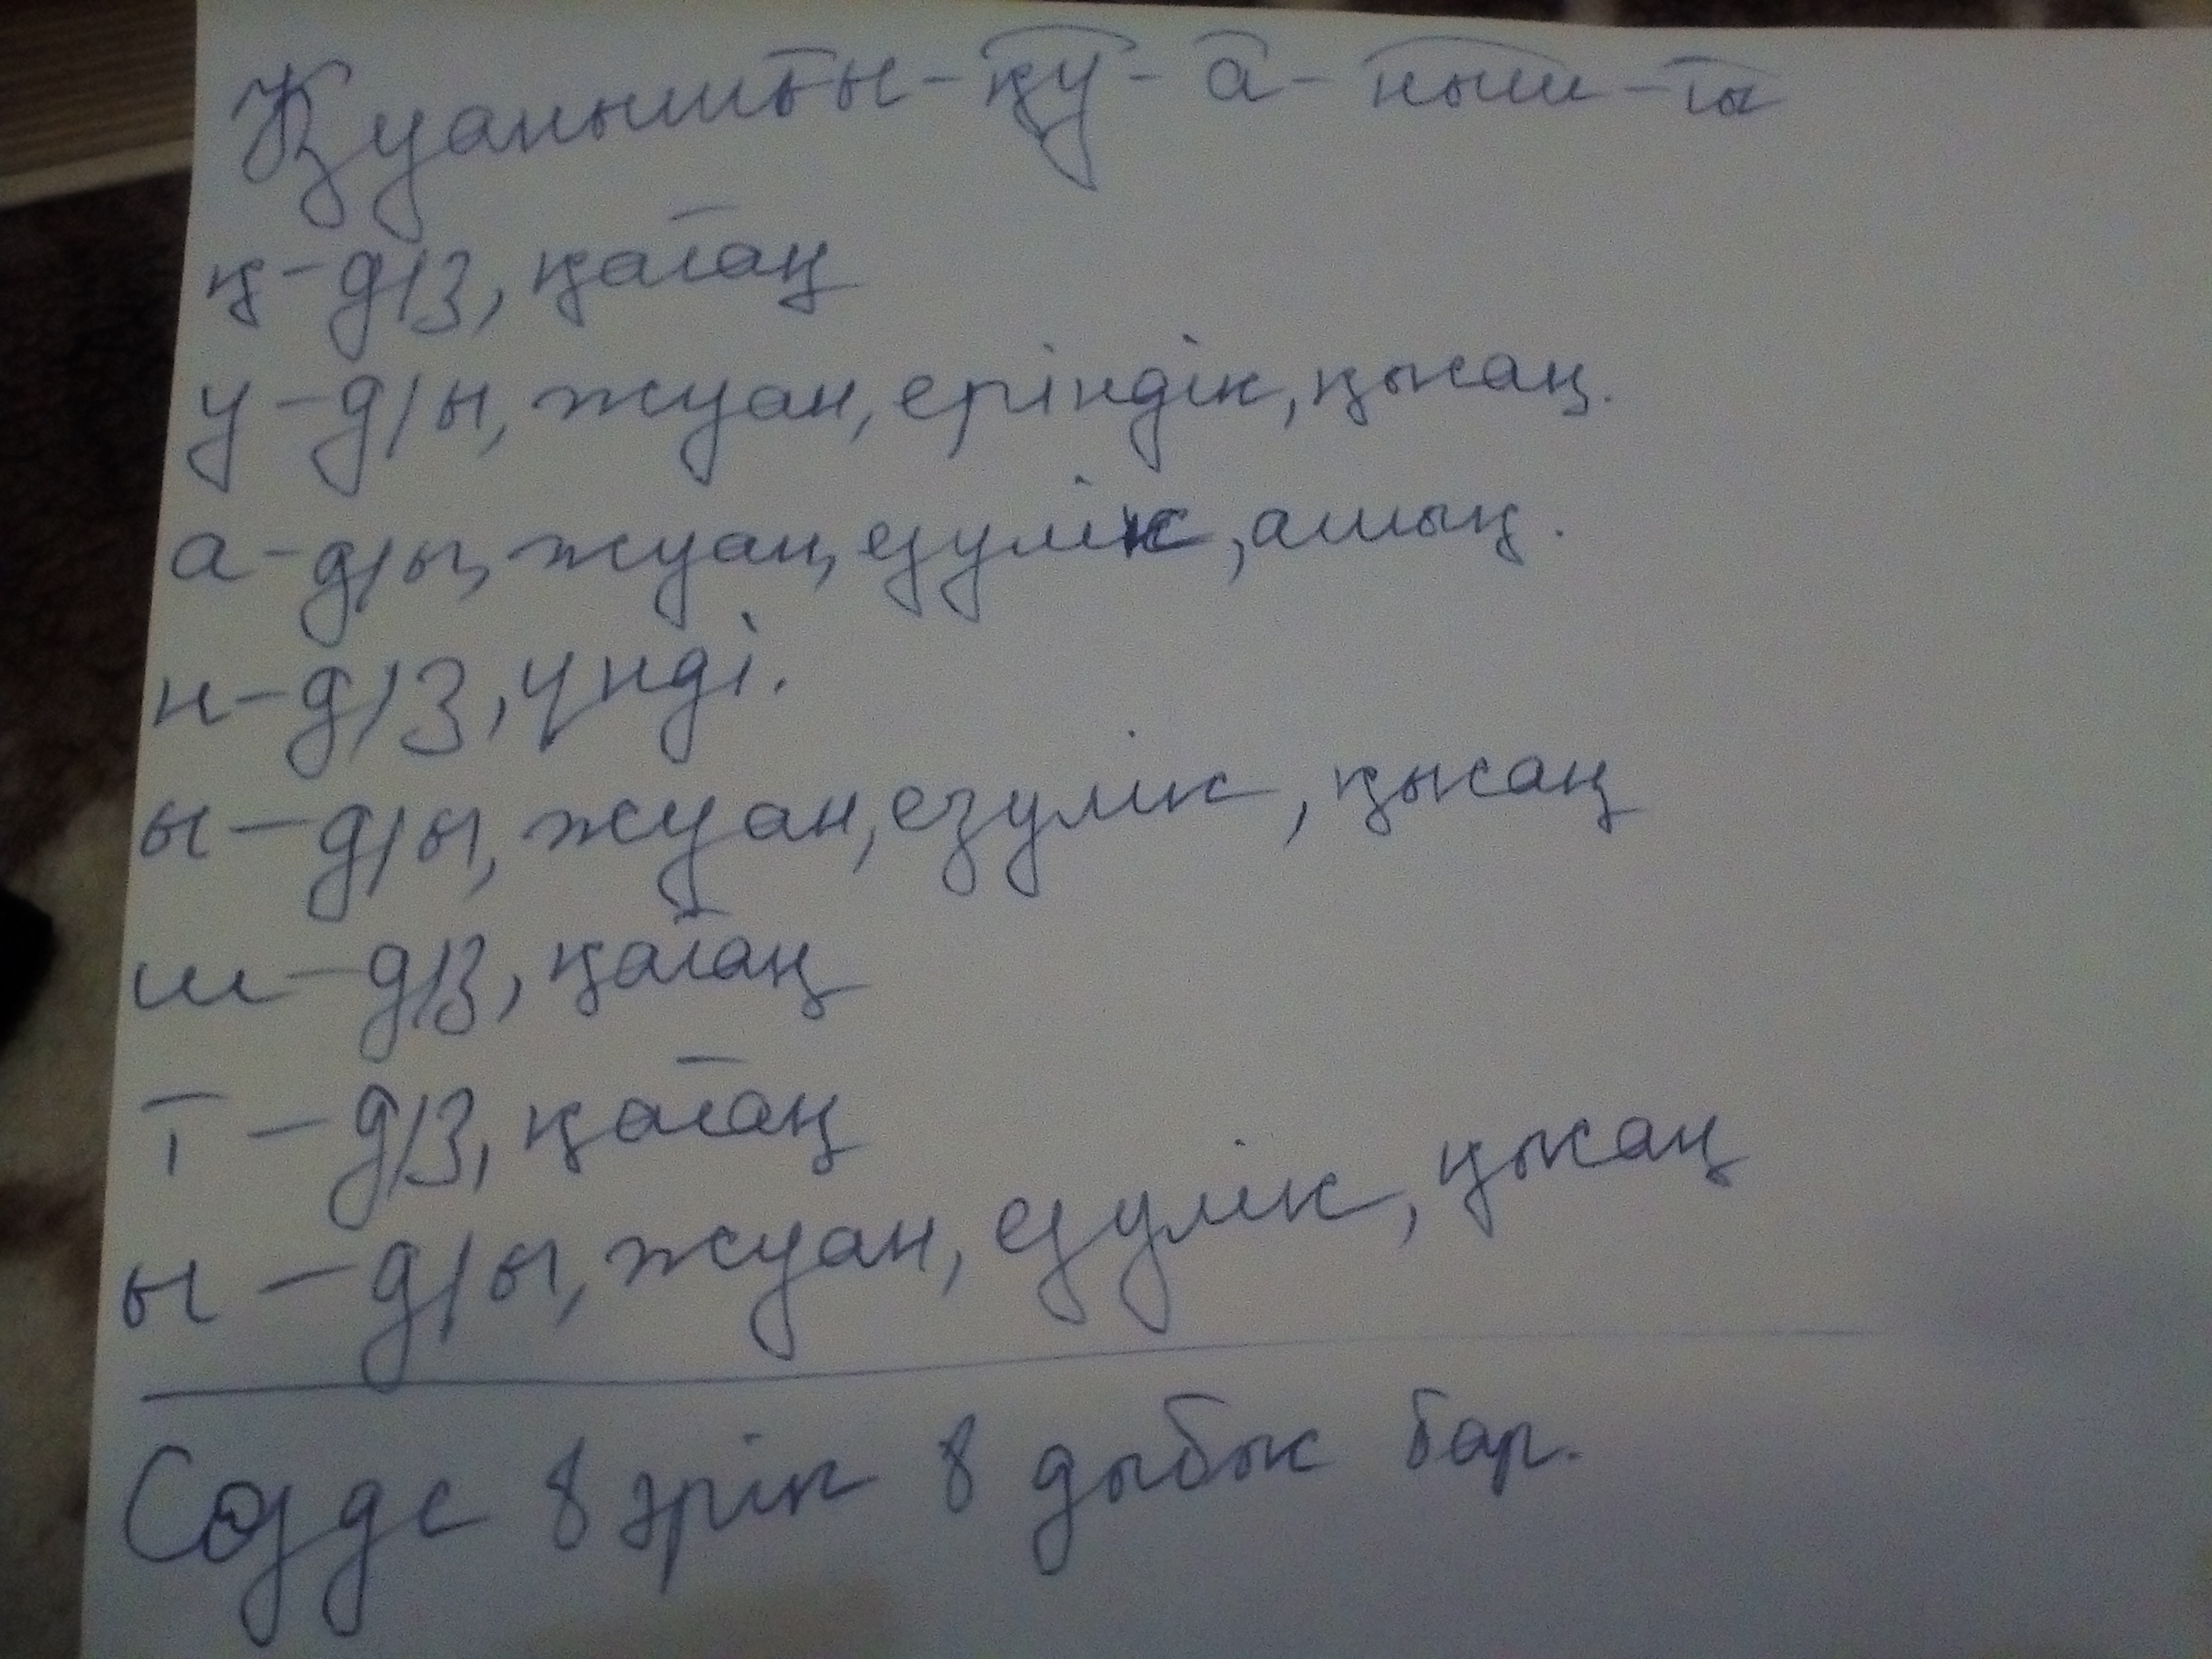 Қуанышты - қу - а - ныш - ты
қ - д/з, қатаң
у - д/ы, жуан, еріндік, қысаң.
а - д/ы, жуан, езулік, ашық.
н - д/з, үнді.
ы - д/ы, жуан, езулік, қысаң
ш - д/з, қатаң
т - д/з, қатаң
ы - д/ы, жуан, езулік, қысаң
Сөзде 8 әріп 8 дыбыс бар.